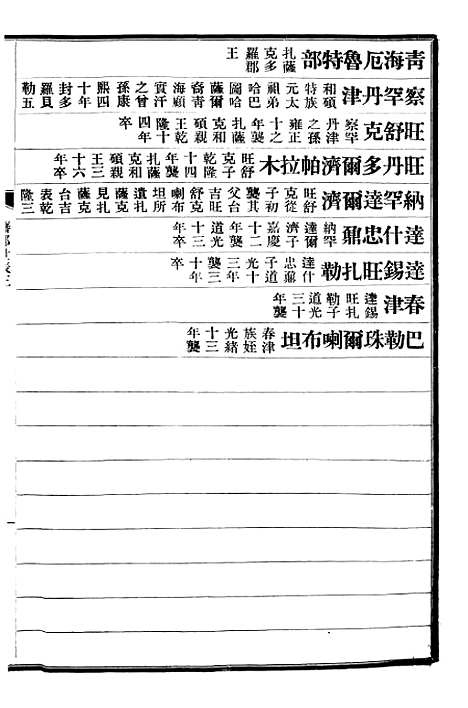 青海厄魯特部 扎薩克多羅郡王
察罕丹津 和碩特族元太祖弟哈巴圖哈薩爾裔青海顧實汗之曾孫康熙四十年封多羅貝勒五
旺舒克 察罕丹津之孫雍正十三年襲扎薩克和碩親王乾隆十四年卒
旺丹多爾濟帕拉木 旺舒克子乾隆十四年襲扎薩克和碩親王三十六年卒
納罕達爾濟 旺舒克從子初襲其父台吉旺舒克喇布坦所遺扎薩克見扎薩克台吉表乾隆三
達什忠鼐 納罕達爾濟子嘉慶十二年襲道光十三年卒
達錫旺扎勒 達什忠鼐子道光十三年襲三十年卒
春津 達錫旺扎勒子道光三十年襲
巴勒珠爾喇布坦 春津族姪光緒十三年襲